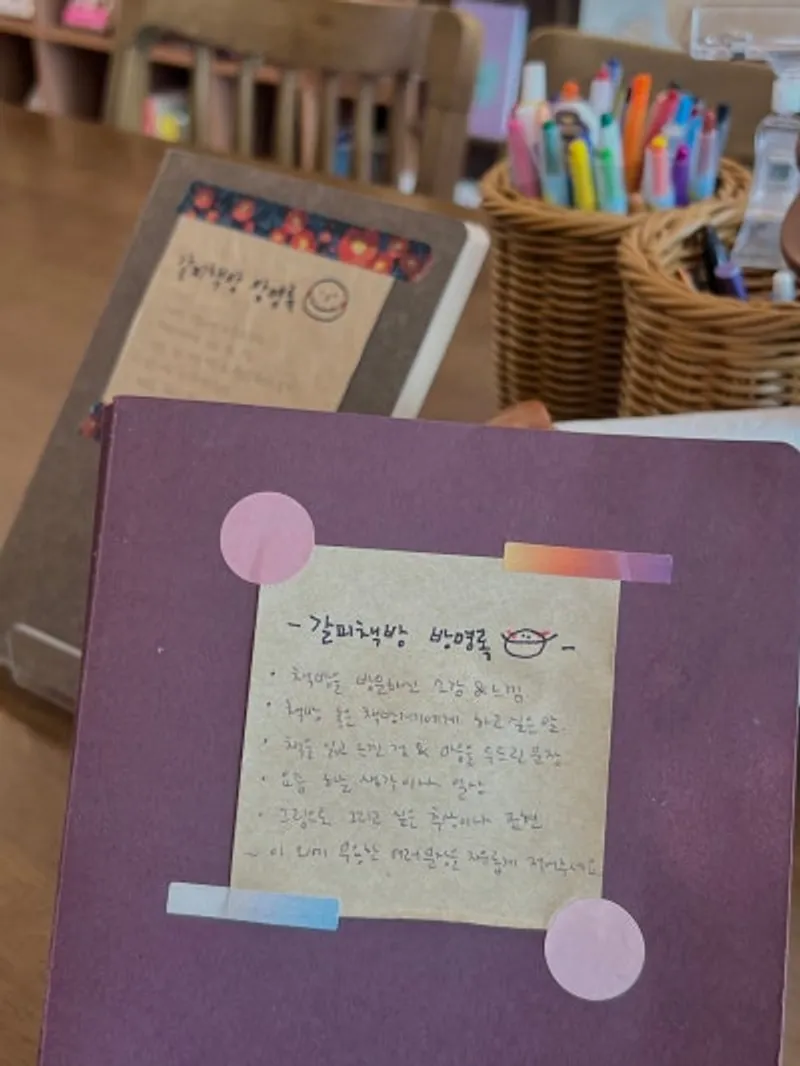 갈피책방 방명록
- 갈피책방 방명록 -
• 책방을 방문하신 소감 & 느낌
• 책방 혹은 책방지기에게 하고 싶은 말.
• 책을 읽고 느낀 점 & 마음을 두드린 문장
• 요즘 하는 생각이나 일상
• 그림으로 그리고 싶은 추상이나 표현
~ 이 외에 무궁한 여러분을 자유롭게 적어주세요